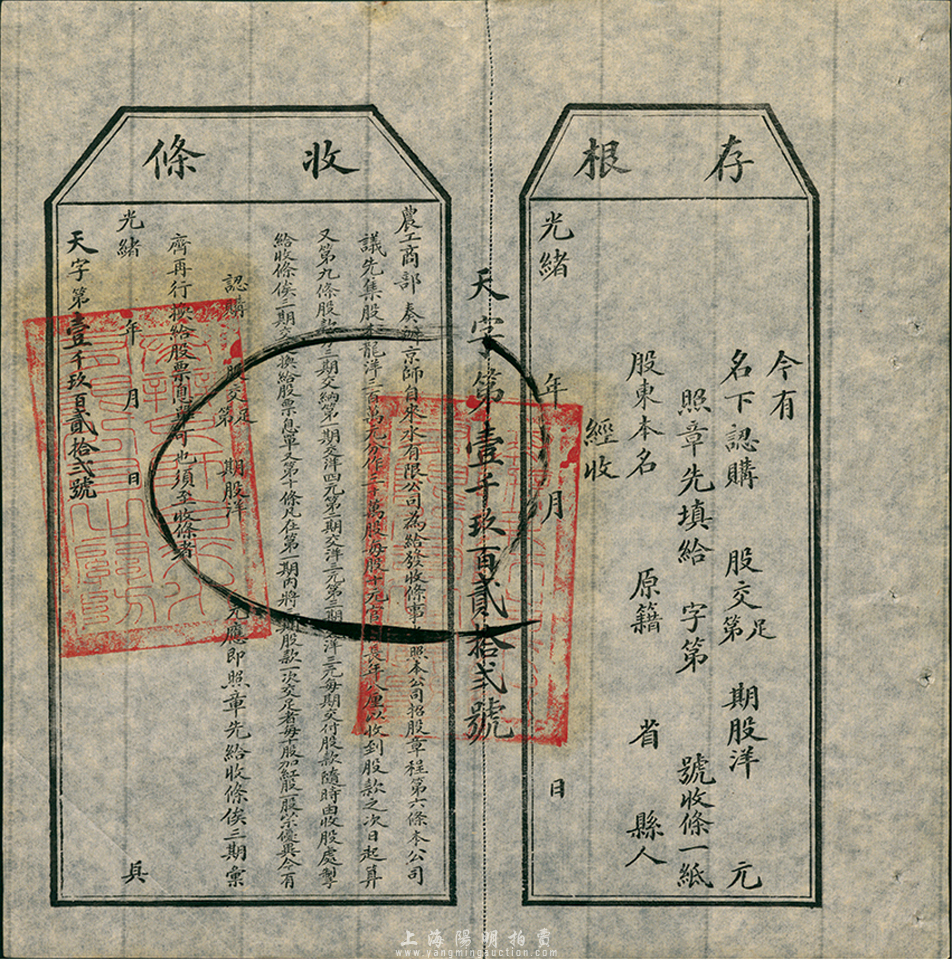 存根
今有
名下認購 股交足第 期股洋 元
照章先填給 字第 號收條一紙
股東本名 原籍 省 縣人
經收
光緒 年 月 日
天字第壹千玖百貳拾弍號
收條
農工商部奏辦京師自來水有限公司為給發收條事 照本公司招股章程第六條本公司
議先集股本龍洋三百萬元分作三十萬股每股十元官 長年 厘以收到股款之次日起算
又第九條股款分三期交納第一期交洋四元第二期交洋三元第三期 洋三元每期交付股款隨時由收股處掣
給收條俟三期交 換給股票息單又第十條凡在第一期內將 期股款一次交足者每十股加紅股一股以示優異今有
認購 股交足第 期股洋 元應即照章先給收條俟三期彙
齊再行換給股票息單可也須至收條者
光緒 年 月 日 具
天字第壹千玖百貳拾弍號
上海陽明拍賣
www.yangmingauction.com